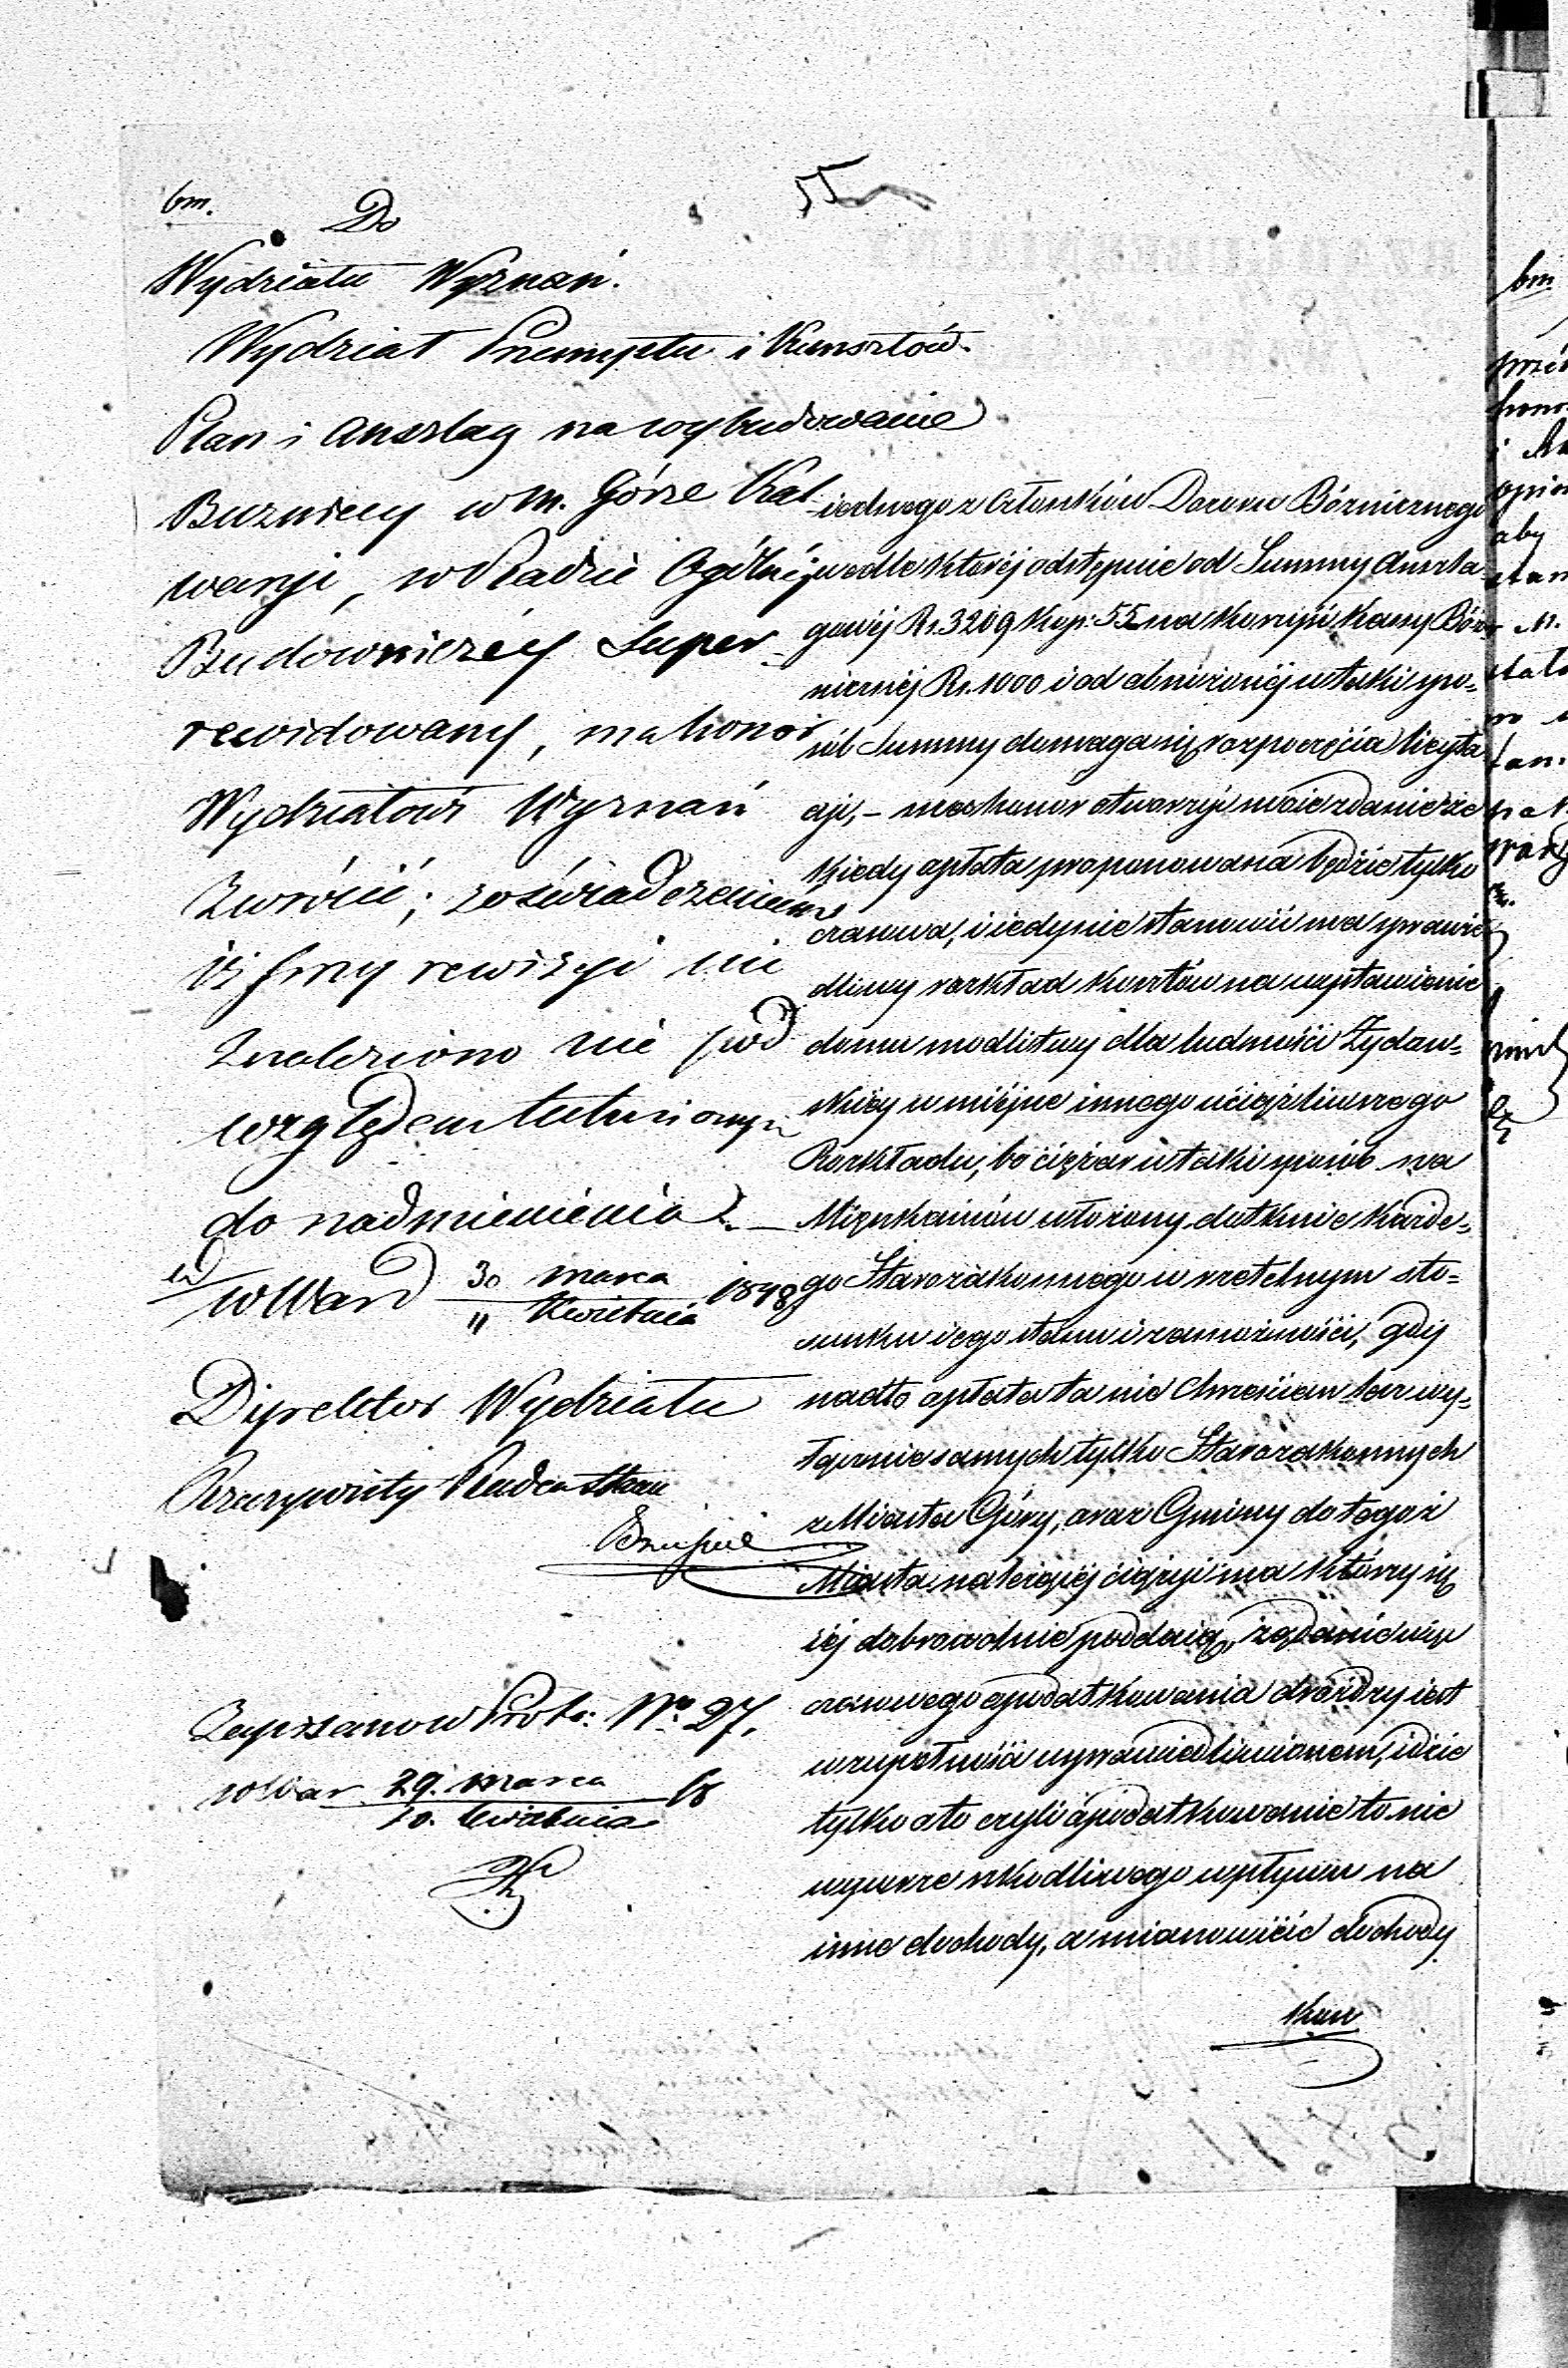 55
bm.
Do
Wydziału Wyznań.
Wydział Przemysłu i Kunsztów.
Plan i Anszlag na wybudowanie
Buznicy w M. Górze Kal
waryi, w Radzie Ogólnéj
Budowniczéj Super
rewidowany, ma honor
Wydziałowi Wyznań
Zwrócić; z oświadczeniem
iż przy rewizyi nie
Znaleziono nic pod
względem tutejszym
do nadmienienia. —
w War 30 marca 1848
" Kwietnia
Dyrektor Wydziału
Rzeczywisty Radca Stanu
Zapisano w Prot: No 27.
w War 29. marca
10. Kwietnia
iednego z Członków Dozoru Bóznicznego
wedle któréj odstępuie od Summy Anszla-
gowéj Rs. 3209 kop: 55 na korzyść kassy Bóz
nicznéj Rs. 1000 i od zniżonéj w taki spo-
sób Summy domaga się rozpoczęcia licyta
cyi, – mam honor otworzyć moie zdanie że
kiedy opłata proponowana będzie tylko
czasowa, i iedynie stanowić ma sprawie
dliwy rozkład kosztów na wystawienie
domu modlitwy dla ludności Żydow-
skiéy w miéjsce innego uciążliwszego
Rozkładu, bo ciężar w taki sposób na
Mieszkańców włożony dotknie każde-
go Starozakonnego w rzetelnym sto-
sunku iego stanu i zamożności, gdy
nadto opłata ta nie Chrześcian lecz wy-
łącznie samych tylko Starozakonnych
z Miasta Góry, oraz Gminy do tegoż
Miasta należącéj ciążyć ma którzy się
iéj dobrowolnie poddaią, żądanie więc
czasowego opodatkowania drożdży iest
w zupełności usprawiedliwionem, idzie
tylko o to czyli opodatkowanie to nie
wywrze szkodliwego wpływu na
inne dochody, a mianowicie dochody
bm
aby